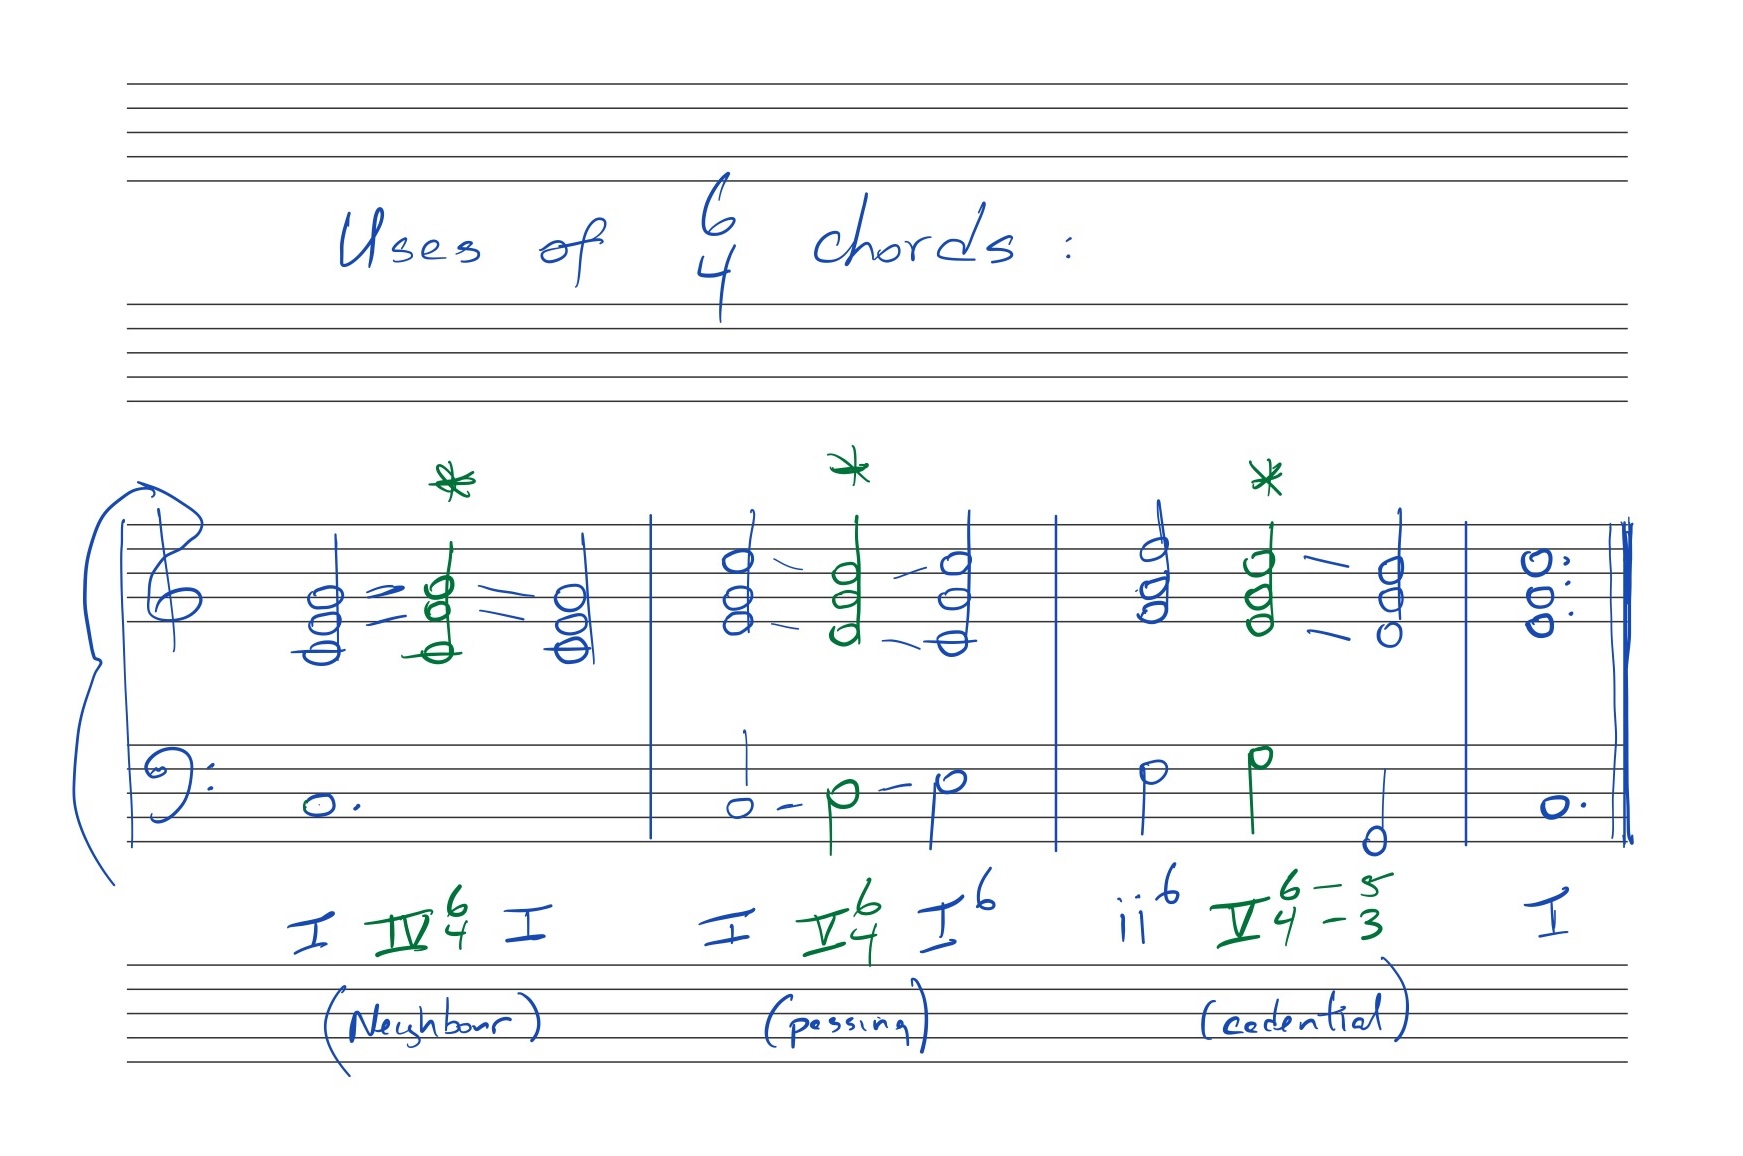 Uses of 6/4 chords:
* * *
I IV6/4 I I V6/4 I6 ii6 V6/4-5/3 I
(Neighbour) (passing) (cadential)